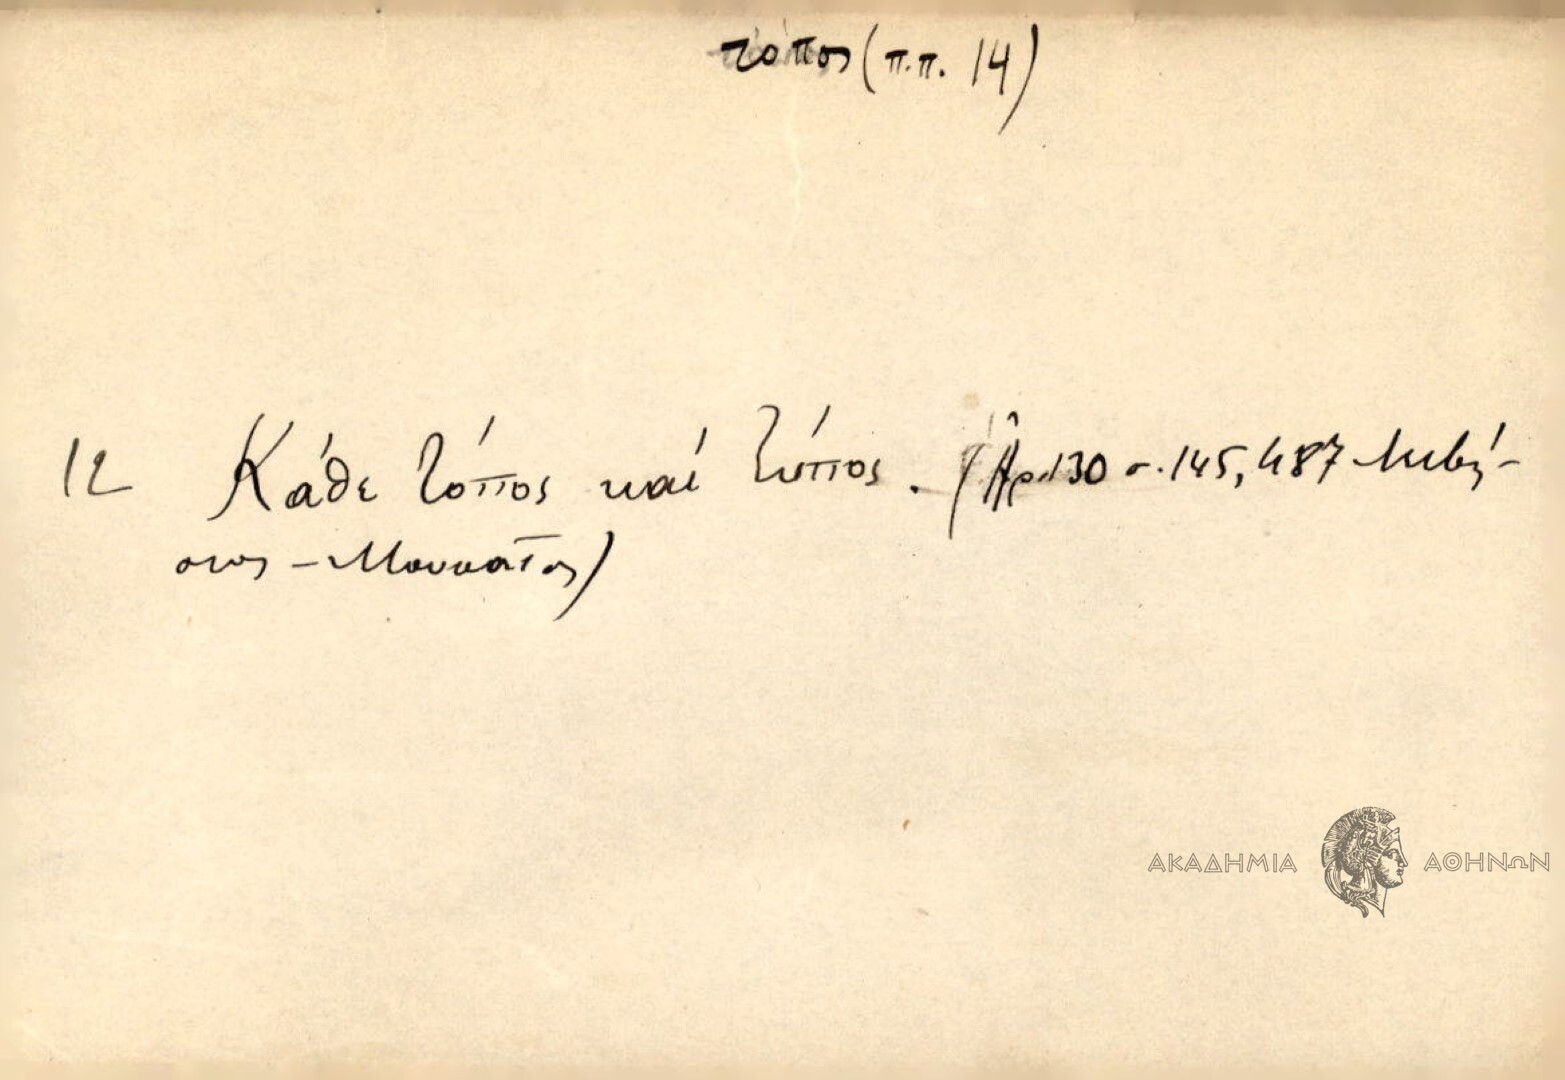 τόπος (π.π. 14)
12 Κάθε τόπος καί τύπος. (Ἀρ. 130 σ. 145, 487 Λιβή-
σιος – Μουσαῖος)
ΑΚΑΔΗΜΙΑ ΑΘΗΝΩΝ